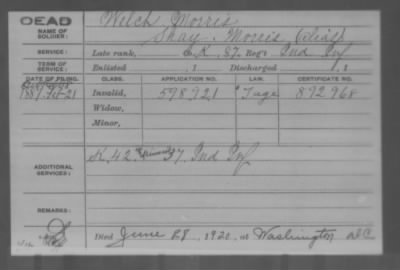 DEAD
NAME OF SOLDIER: Welch Morris
Shay, Morris, (alias)
SERVICE: Late rank, K, 37, Reg't Ind Inf
TERM OF SERVICE: Enlisted , 1 Discharged , 1
DATE OF FILING. CLASS. APPLICATION NO. LAW. CERTIFICATE NO.
1887 Oct 21 Invalid, 598921 Age 892968
Widow,
Minor,
ADDITIONAL SERVICES: K. 42. 37. Ind Inf
REMARKS:
Died June 28, 1920, at Washington DC